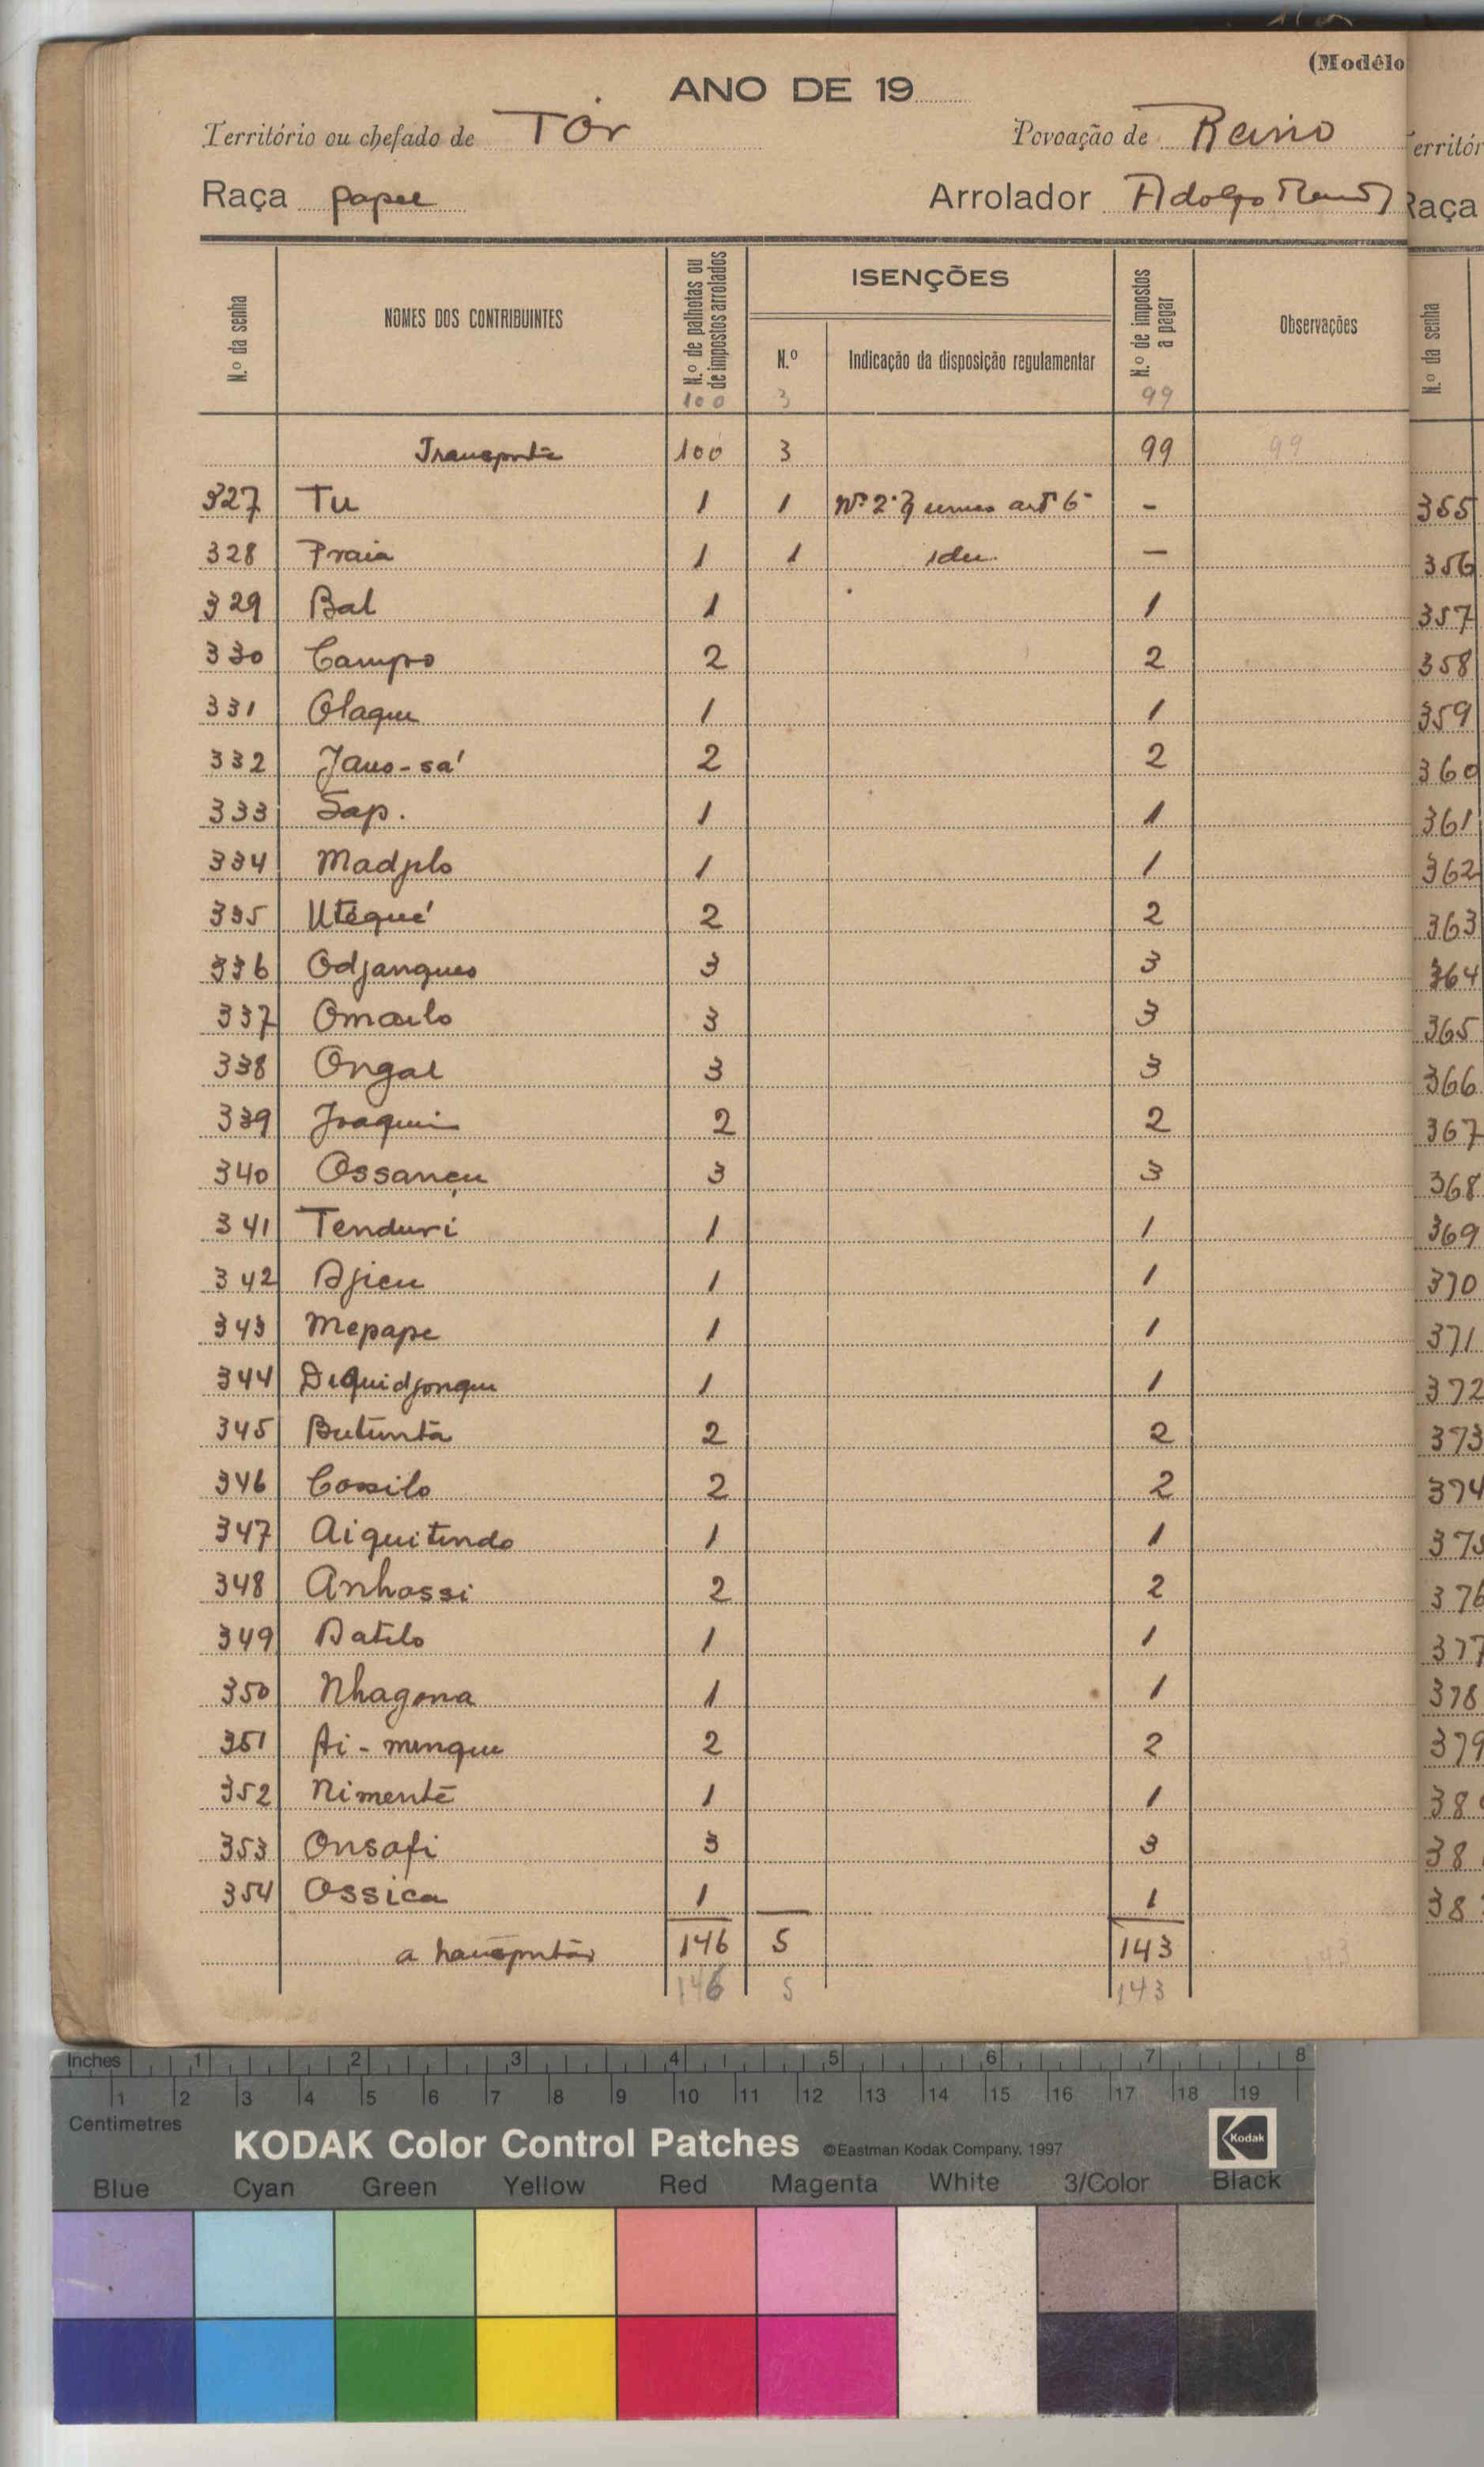 (Modêlo
ANO DE 19
Território ou chefado de Tôr Povoação de Reino
Raça papel Arrolador Adolfo
N.º da senha NOMES DOS CONTRIBUINTES N.º de palhotas ou de impostos arrolados ISENÇÕES N.º Indicação da disposição regulamentar N.º de impostos a pagar Observações
100 3 99
Transporte 100 3 99 99
327 Tu 1 1 Nº 2º art 6º -
328 Praia 1 1 idem -
329 Bal 1 1
330 Campo 2 2
331 Olaque 1 1
332 Jaus-sá 2 2
333 Sap. 1 1
334 Madjlo 1 1
335 Utéqué 2 2
336 Odjanques 3 3
337 Omailo 3 3
338 Ongal 3 3
339 Joaquim 2 2
340 Ossançu 3 3
341 Tenduri 1 1
342 Ajicu 1 1
343 Mepape 1 1
344 Diquidjonque 1 1
345 Butuntã 2 2
346 Cossilo 2 2
347 Aiquitindo 1 1
348 Anhossi 2 2
349 Batilo 1 1
350 Nhagona 1 1
351 Ai-minque 2 2
352 Nimentê 1 1
353 Onsafi 3 3
354 Ossica 1 1
a transportar 146 5 143 143
146 5 143
erritór
Raça
N.º da senha
355
356
357
358
359
360
361
362
363
364
365
366
367
368
369
370
371
372
373
374
375
376
377
378
379
38
38
38
Inches 1 2 3 4 5 6 7 8
1 2 3 4 5 6 7 8 9 10 11 12 13 14 15 16 17 18 19
Centimetres
KODAK Color Control Patches ©Eastman Kodak Company, 1997 Kodak
Blue Cyan Green Yellow Red Magenta White 3/Color Black